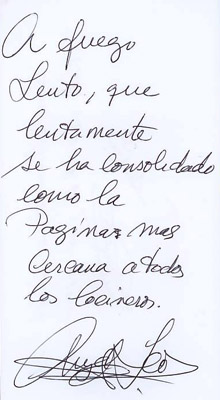 A fuego
Lento, que
lentamente
se ha consolidado
como la
Paginas mas
Cercana a todos
los Cocineros.